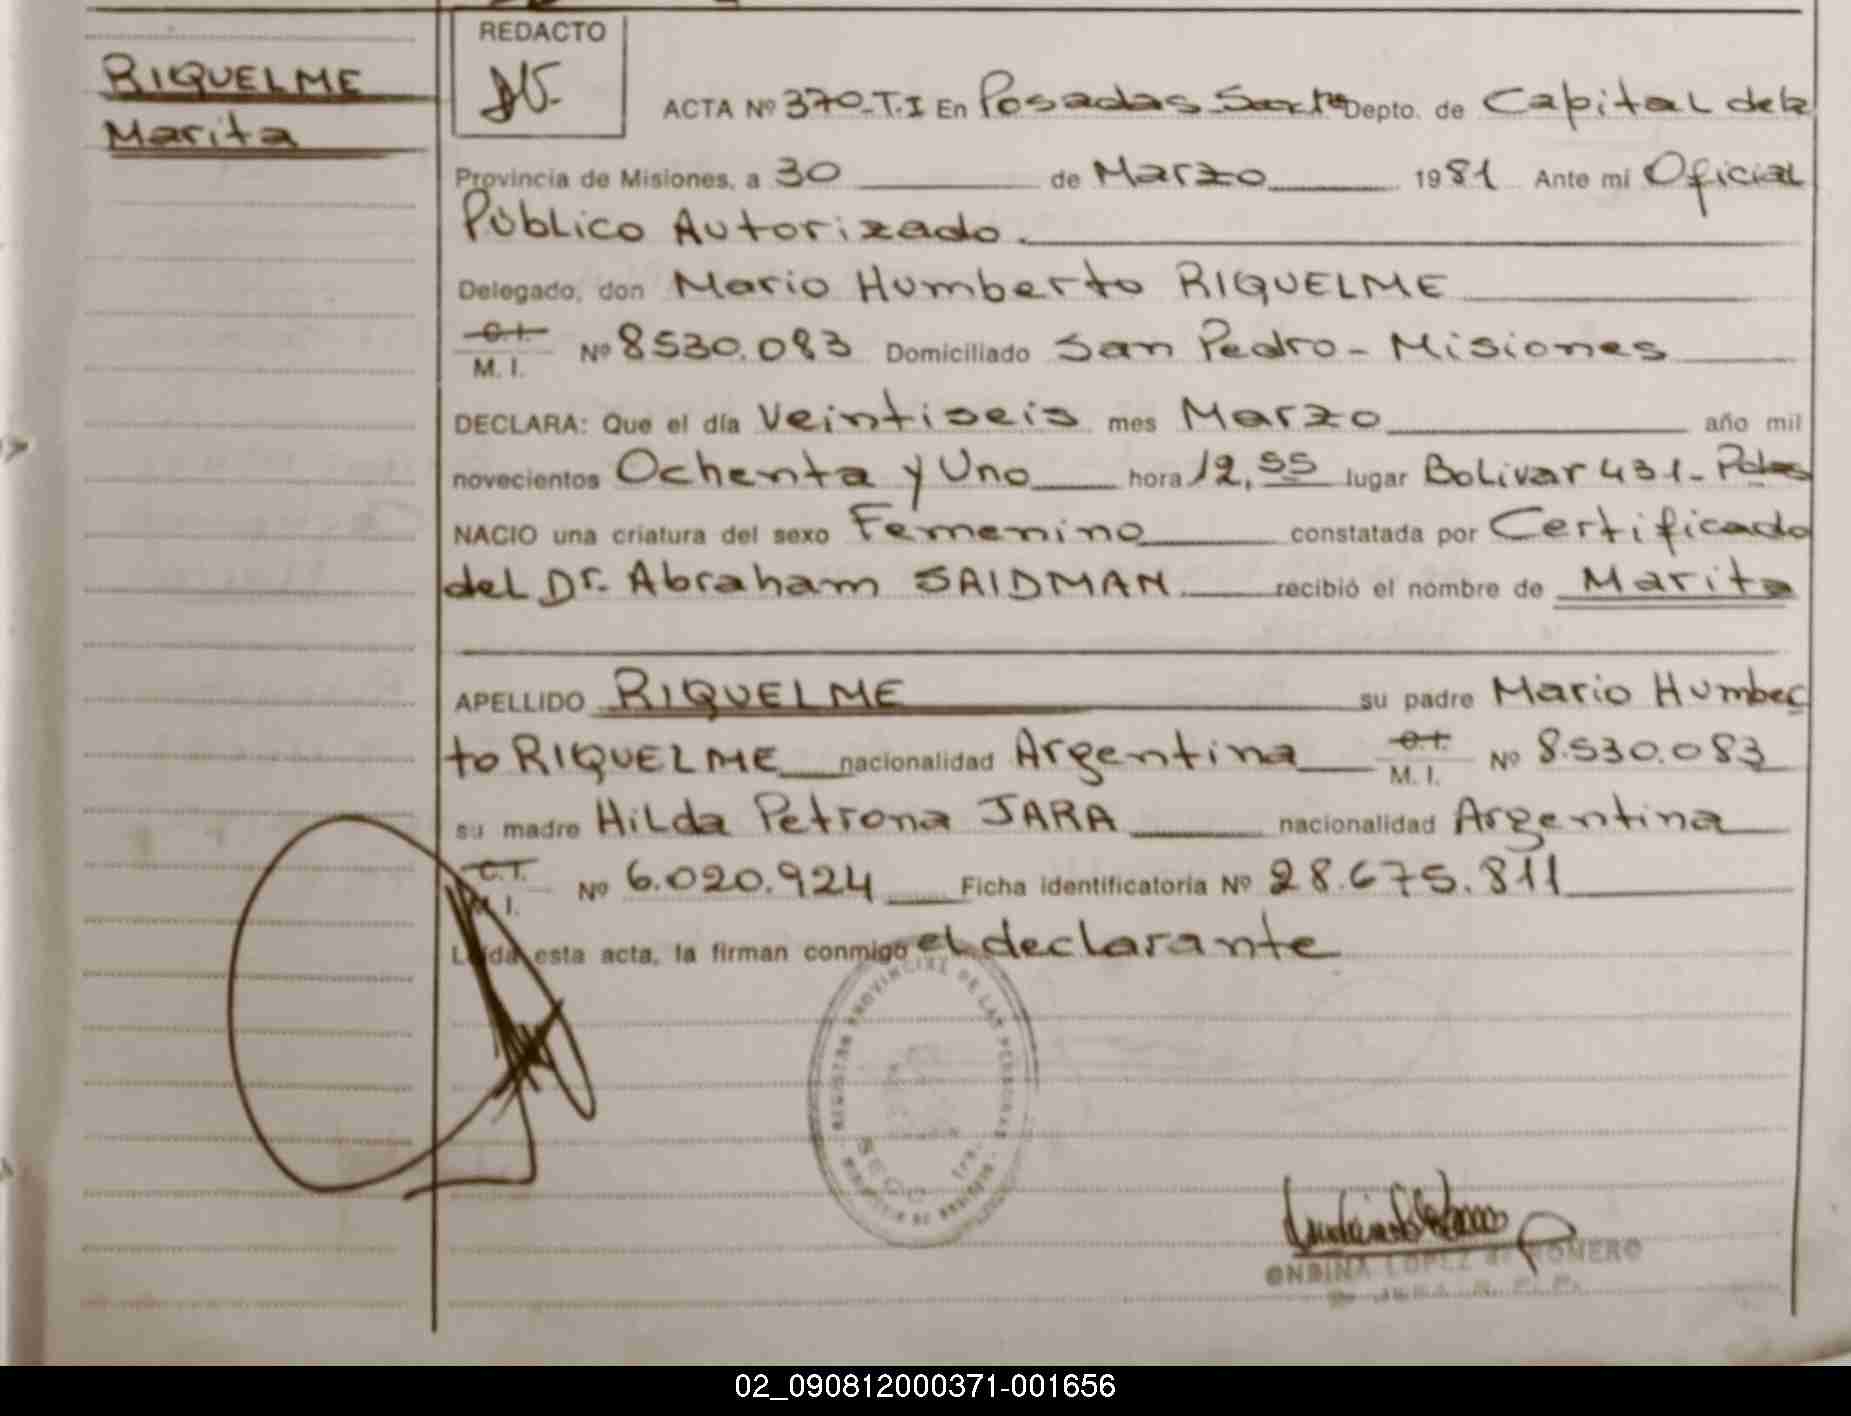 RIQUELME
Marita
REDACTO
ACTA Nº 370-T.I En Posadas Depto. de Capital de la
Provincia de Misiones, a 30 de Marzo 1981 Ante mi Oficial
Público Autorizado.
Delegado, don Mario Humberto RIQUELME
C.I.
M. I. Nº 8530.083 Domiciliado San Pedro - Misiones
DECLARA: Que el día Veintiseis mes Marzo año mil
novecientos Ochenta y Uno hora 12,55 lugar Bolivar 431 - Pdas
NACIO una criatura del sexo Femenino constatada por Certificado
del Dr. Abraham SAIDMAN recibió el nombre de Marita
APELLIDO RIQUELME su padre Mario Humber
to RIQUELME nacionalidad Argentina C.I. M. I. Nº 8.530.083
su madre Hilda Petrona JARA nacionalidad Argentina
C.I.
M. I. Nº 6.020.924 Ficha identificatoria Nº 28.675.811
Leída esta acta, la firman conmigo el declarante
REGISTRO PROVINCIAL DE LAS PERSONAS
SECC. 1ra.
PROVINCIA DE MISIONES
ONDINA LOPEZ de ROMERO
02_090812000371-001656